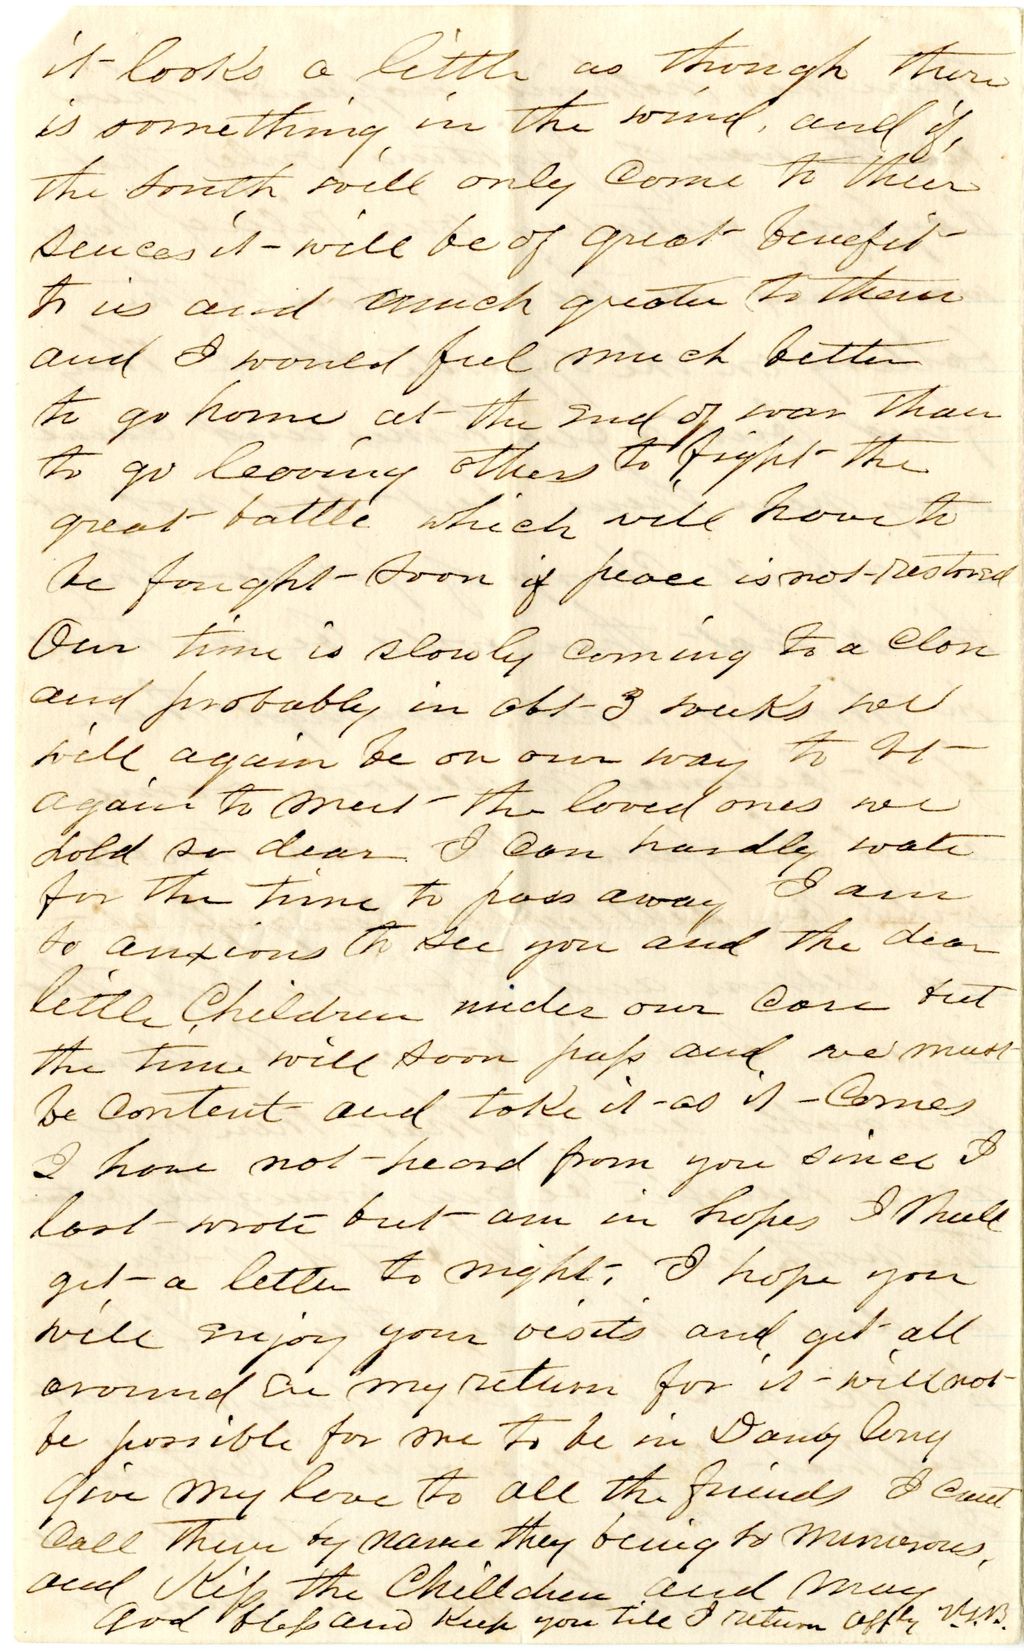 it looks a little as though there
is something in the wind, and if,
the South will only come to their
sences it will be of great benefit
to us and much greater to them
and I would feel much better
to go home at the end of war than
to go leaving others to fight the
great battle which will have to
be fought soon if peace is not restored
Our time is slowly coming to a close
and probably in abt 3 weeks we
will again be on our way to Vt
again to meet the loved ones we
hold so dear. I can hardly wate
for the time to pass away I am
so anxious to see you and the dear
little Children under our care but
the time will soon pass and we must
be content and take it as it Comes
I have not heard from you since I
last wrote but am in hopes I shall
get a letter to night. I hope you
will enjoy your visits and get all
around ere my return for it will not
be possible for me to be in Danby long
Give my love to all the friends I cant
Call them by name they being to numerous,
and Kiss the Chilldren and may
God bless and Keep you till I return affly